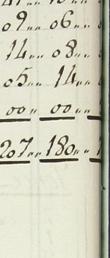 09.. 06..
14.. 08..
05.. 14..
00.. 00..
207.. 180..